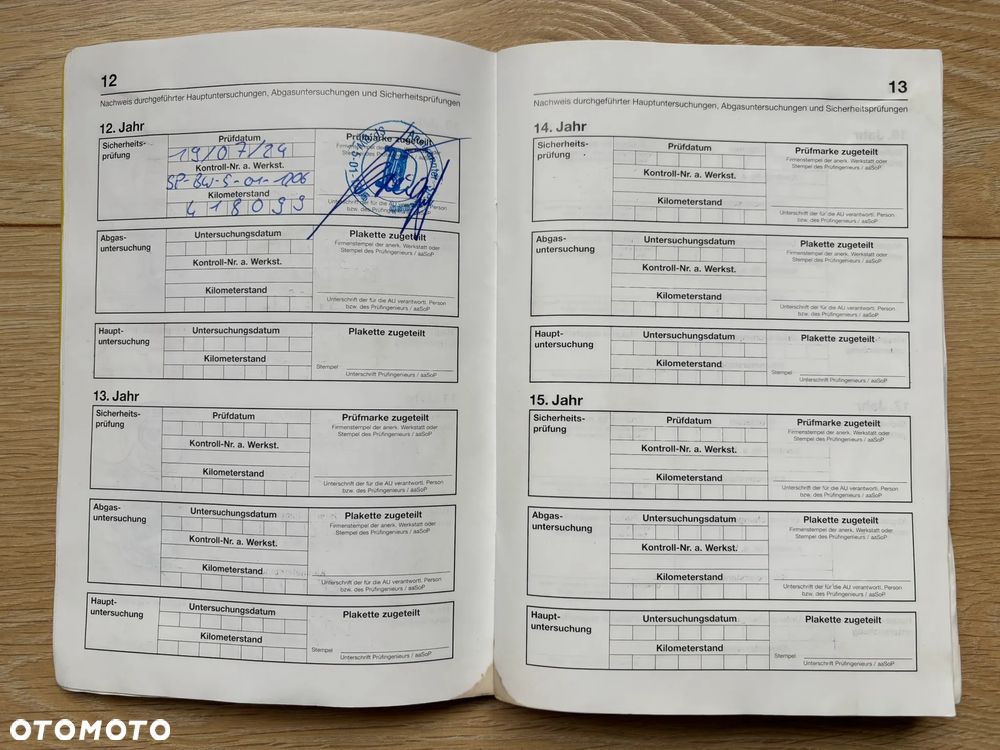 12
Nachweis durchgeführter Hauptuntersuchungen, Abgasuntersuchungen und Sicherheitsprüfungen
12. Jahr
Sicherheits-
prüfung
Prüfdatum
19/07/24
Kontroll-Nr. a. Werkst.
SP-BW-S-01-1206
Kilometerstand
418099
Prüfmarke zugeteilt
Abgas-
untersuchung
Untersuchungsdatum
Kontroll-Nr. a. Werkst.
Kilometerstand
Plakette zugeteilt
Firmenstempel der anerk. Werkstatt oder
Stempel des Prüfingenieurs / aaSoP
Unterschrift der für die AU verantwortl. Person
bzw. des Prüfingenieurs / aaSoP
Haupt-
untersuchung
Untersuchungsdatum
Kilometerstand
Plakette zugeteilt
Stempel
Unterschrift Prüfingenieurs / aaSoP
13. Jahr
Sicherheits-
prüfung
Prüfdatum
Kontroll-Nr. a. Werkst.
Kilometerstand
Prüfmarke zugeteilt
Firmenstempel der anerk. Werkstatt oder
Stempel des Prüfingenieurs / aaSoP
Unterschrift der für die AU verantwortl. Person
bzw. des Prüfingenieurs / aaSoP
Abgas-
untersuchung
Untersuchungsdatum
Kontroll-Nr. a. Werkst.
Kilometerstand
Plakette zugeteilt
Firmenstempel der anerk. Werkstatt oder
Stempel des Prüfingenieurs / aaSoP
Unterschrift der für die AU verantwortl. Person
bzw. des Prüfingenieurs / aaSoP
Haupt-
untersuchung
Untersuchungsdatum
Kilometerstand
Plakette zugeteilt
Stempel
Unterschrift Prüfingenieurs / aaSoP
13
Nachweis durchgeführter Hauptuntersuchungen, Abgasuntersuchungen und Sicherheitsprüfungen
14. Jahr
Sicherheits-
prüfung
Prüfdatum
Kontroll-Nr. a. Werkst.
Kilometerstand
Prüfmarke zugeteilt
Firmenstempel der anerk. Werkstatt oder
Stempel des Prüfingenieurs / aaSoP
Unterschrift der für die AU verantwortl. Person
bzw. des Prüfingenieurs / aaSoP
Abgas-
untersuchung
Untersuchungsdatum
Kontroll-Nr. a. Werkst.
Kilometerstand
Plakette zugeteilt
Firmenstempel der anerk. Werkstatt oder
Stempel des Prüfingenieurs / aaSoP
Unterschrift der für die AU verantwortl. Person
bzw. des Prüfingenieurs / aaSoP
Haupt-
untersuchung
Untersuchungsdatum
Kilometerstand
Plakette zugeteilt
Stempel
Unterschrift Prüfingenieurs / aaSoP
15. Jahr
Sicherheits-
prüfung
Prüfdatum
Kontroll-Nr. a. Werkst.
Kilometerstand
Prüfmarke zugeteilt
Firmenstempel der anerk. Werkstatt oder
Stempel des Prüfingenieurs / aaSoP
Unterschrift der für die AU verantwortl. Person
bzw. des Prüfingenieurs / aaSoP
Abgas-
untersuchung
Untersuchungsdatum
Kontroll-Nr. a. Werkst.
Kilometerstand
Plakette zugeteilt
Firmenstempel der anerk. Werkstatt oder
Stempel des Prüfingenieurs / aaSoP
Unterschrift der für die AU verantwortl. Person
bzw. des Prüfingenieurs / aaSoP
Haupt-
untersuchung
Untersuchungsdatum
Kilometerstand
Plakette zugeteilt
Stempel
Unterschrift Prüfingenieurs / aaSoP
OTOMOTO